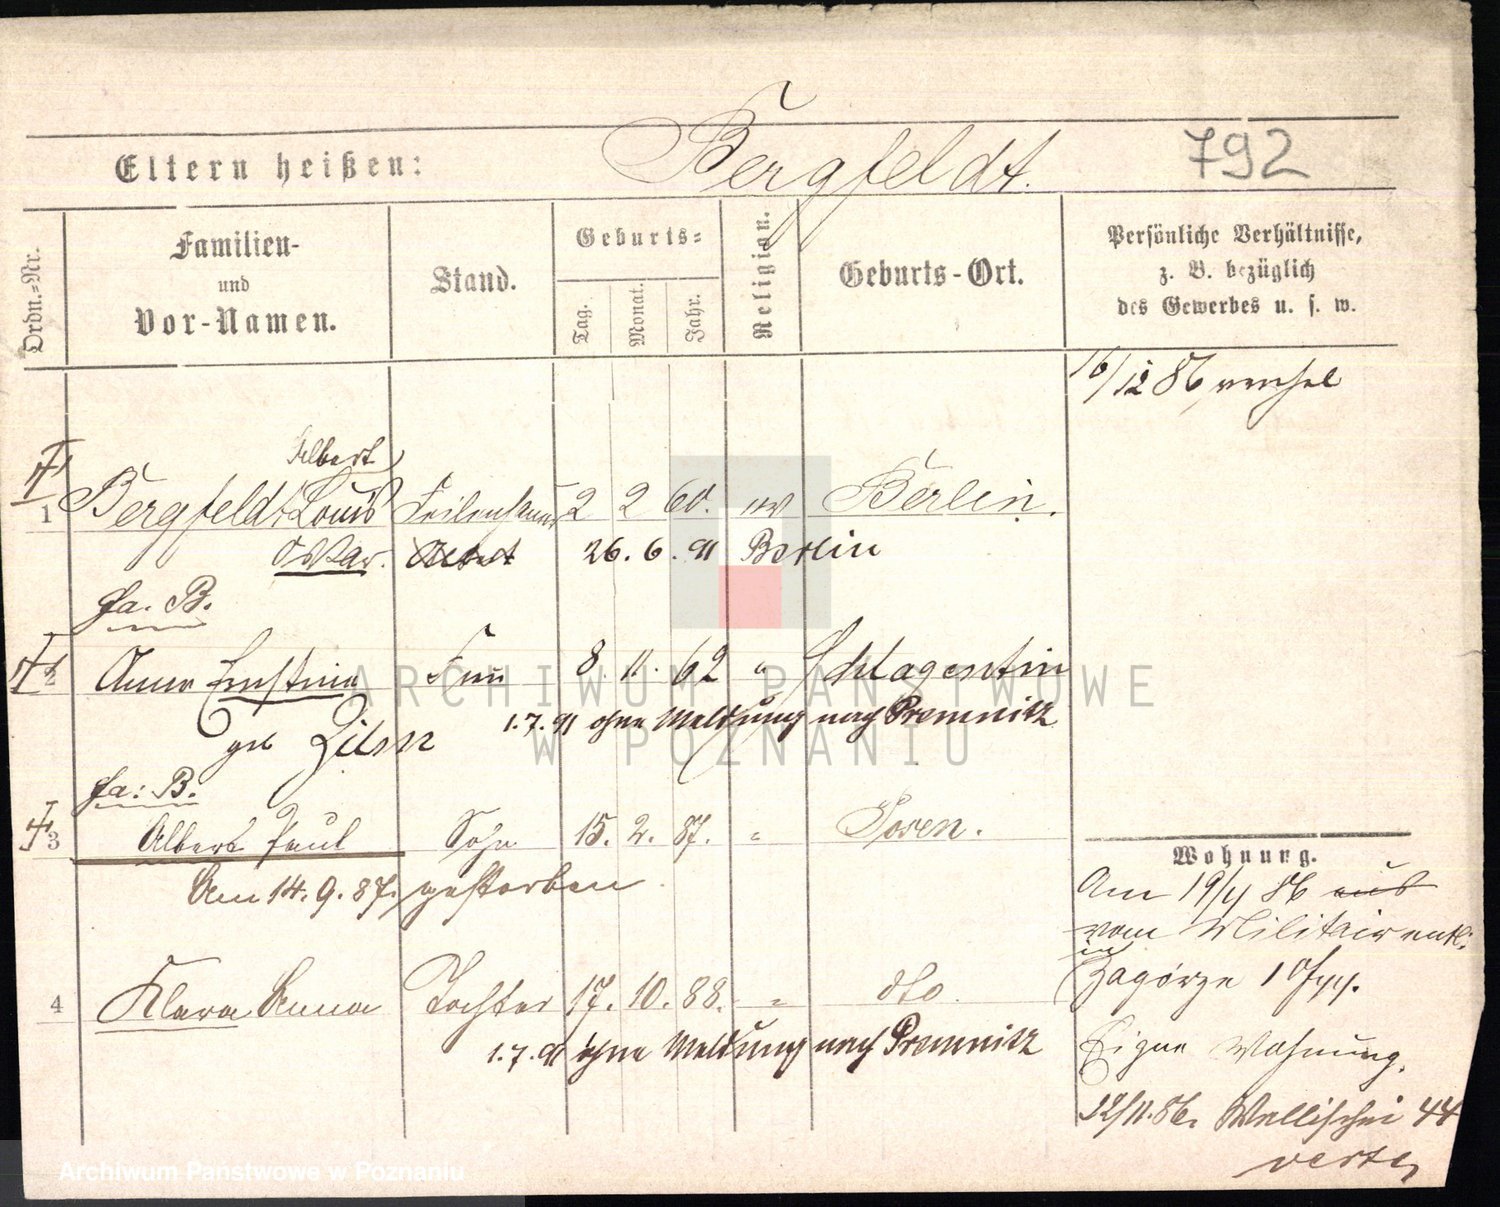 792
Eltern heißen: Bergfeldt.
Ordn.-Nr.
Familien-
und
Vor-Namen.
Stand.
Geburts-
Tag.
Monat.
Jahr.
Religion.
Geburts-Ort.
Persönliche Verhältnisse,
z. B. bezüglich
des Gewerbes u. s. w.
16/12 86
Albert
1 Bergfeldt Louis Feilenhauer 2 2 60. ev Berlin.
Oskar. 26. 6. 91 Berlin
fa. B.
2 Anna Ernstine Frau 8. 11. 62 " Schlagentin
1.7.91 ohne Meldung nach Premnitz
geb
fa: B.
3 Albert Paul Sohn 15. 2. 87. " Posen.
Am 14. 9. 87. gestorben
4 Klara Anna Tochter 17. 10. 88. " dto.
1.7.91 ohne Meldung nach Premnitz
Wohnung.
Am 19/11 86 aus
vom Militair entl.
in
Zagórze 10
Eigne Wohnung.
12/11.86. Wallischei 44
verte
ARCHIWUM PAŃSTWOWE
W POZNANIU
Archiwum Państwowe w Poznaniu